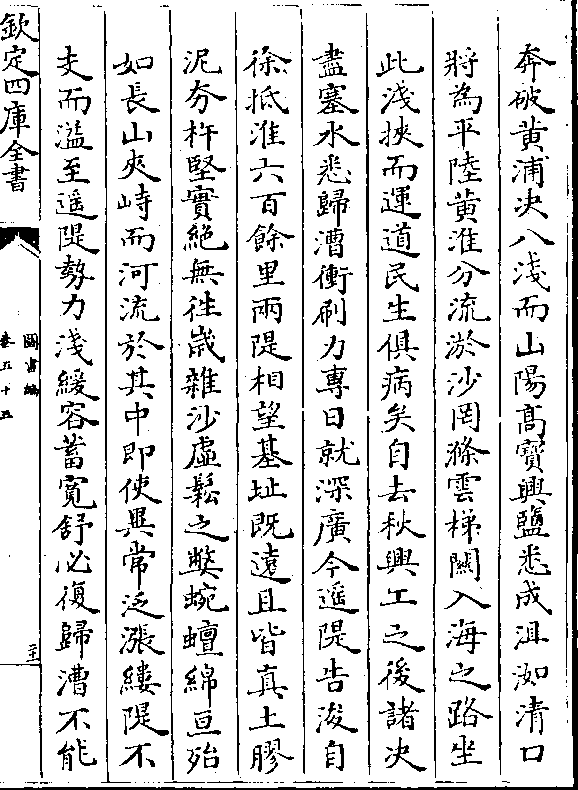 奔破黃浦决八淺而山陽髙寳興鹽悉成沮洳清口
將為平陸黃淮分流淤沙罔滌雲梯闗入海之路坐
此淺挾而運道民生俱病矣自去秋興工之後諸决
盡塞水悉歸漕衝刷力專日就深廣今遥隄告浚自
徐抵淮六百餘里兩隄相望基址既遠且皆真土膠
泥夯杵堅實絶無徃歲雜沙虛鬆之獘蜿蟺綿亘殆
如長山夾峙而河流於其中即使異常泛漲縷隄不
支而溢至遥隄勢力淺緩容蓄寛舒必復歸漕不能
欽定四庫全書
圖書編
卷五十五